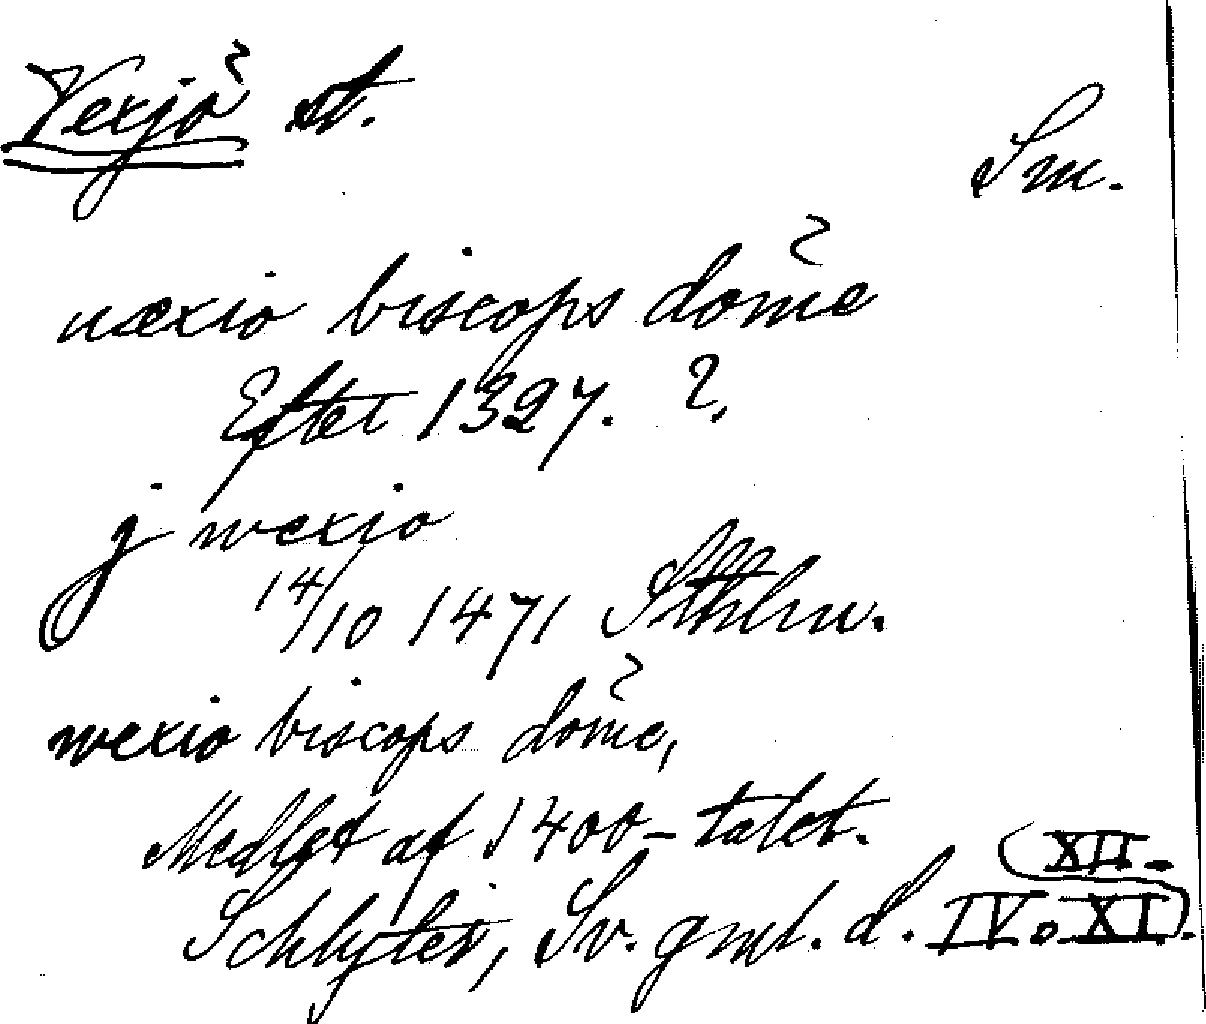 Vexjö st.
Sm.
uæxio biscops dome
Efter 1327. ?.
j wexio
14/10 1471 Sthlm.
wexio biscops dome,
Medlet af 1400-talet.
Schlyter, Sv. gml. l. IV o XI.
XII.